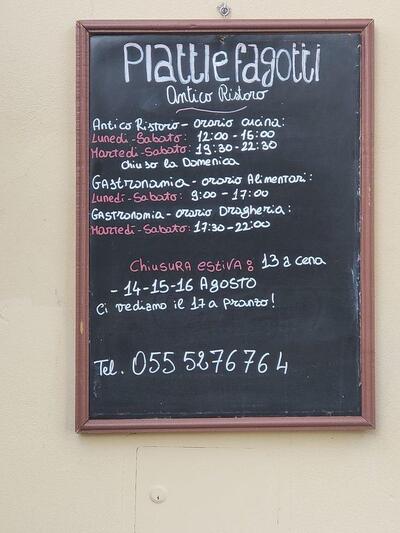 Piatti e fagotti
Antico Ristoro
Antico Ristoro - orario cucina:
Lunedì - Sabato: 12:00 - 16:00
Martedì - Sabato: 19:30 - 22:30
Chiuso la Domenica
Gastronomia - orario Alimentari:
Lunedì - Sabato: 9:00 - 17:00
Gastronomia - orario Drogheria:
Martedì - Sabato: 17:30 - 22:00
Chiusura estiva: 13 a cena
- 14-15-16 Agosto
Ci vediamo il 17 a pranzo!
Tel. 055 5276764